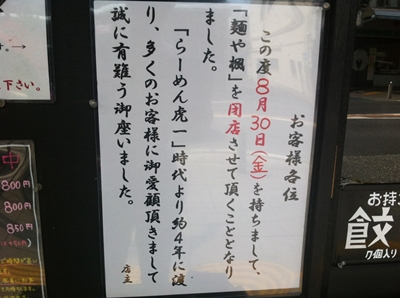 お客様各位
この度8月30日(金)を持ちまして、
「麺や楓」を閉店させて頂くこととなり
ました。
「らーめん虎一」時代より約4年に渡
り、多くのお客様に御愛顧頂きまして
誠に有難う御座いました。
店主
お持
餃
7個入り
下さい。
中
800円
800円
850円